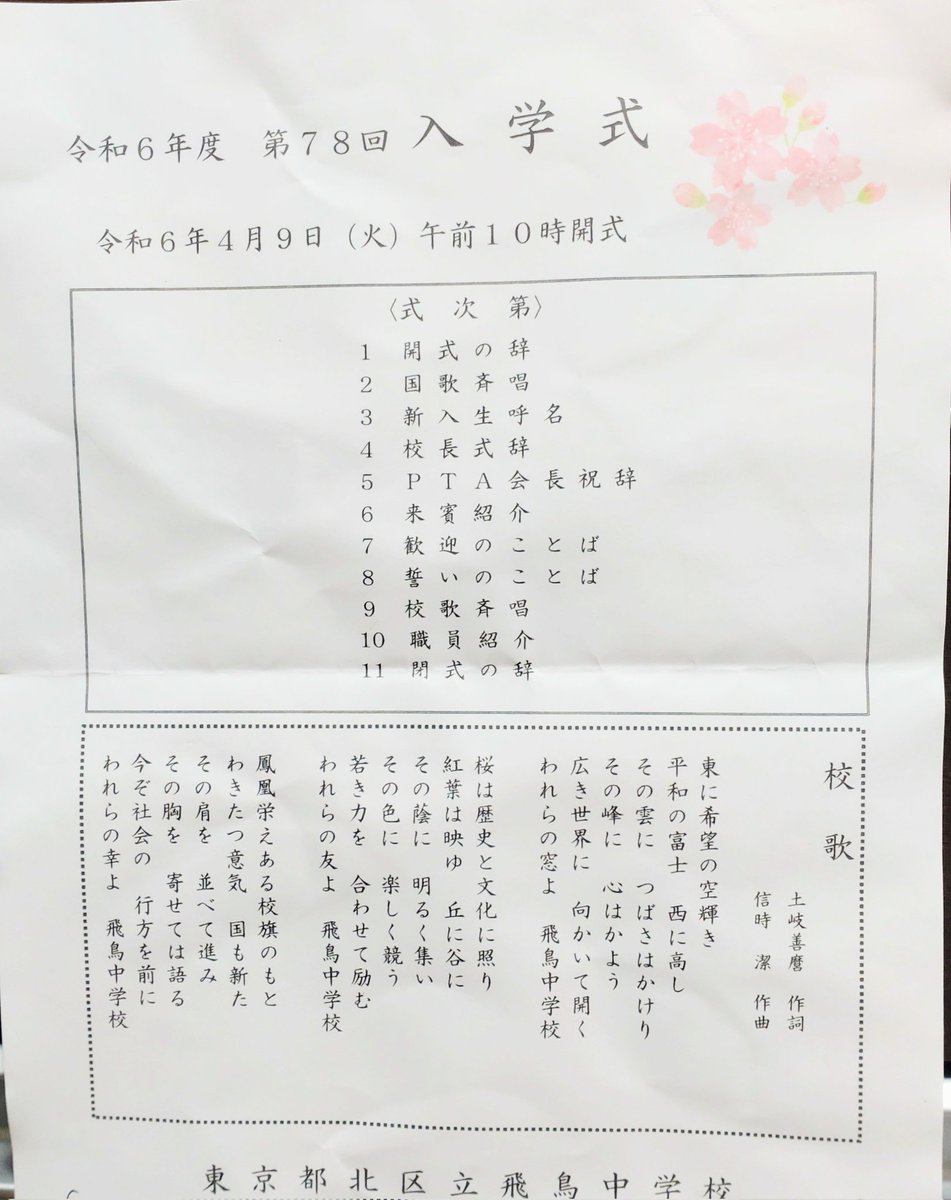 令和6年度　第78回 入学式
令和6年4月9日（火）午前10時開式
〈式次第〉
1 開式の辞
2 国歌斉唱
3 新入生呼名
4 校長式辞
5 PTA会長祝辞
6 来賓紹介
7 歓迎のことば
8 誓いのことば
9 校歌斉唱
10 職員紹介
11 閉式の辞
校歌
土岐善麿　作詞
信時　潔　作曲
東に希望の空輝き
平和の富士　西に高し
その雲に　つばさはかけり
その峰に　心はかよう
広き世界に　向かいて開く
われらの窓よ　飛鳥中学校
桜は歴史と文化に照り
紅葉は映ゆ　丘に谷に
その蔭に　明るく集い
その色に　楽しく競う
若き力を　合わせて励む
われらの友よ　飛鳥中学校
鳳凰栄えある校旗のもと
わきたつ意気　国も新た
その肩を　並べて進み
その胸を　寄せては語る
今ぞ社会の　行方を前に
われらの幸よ　飛鳥中学校
東京都北区立飛鳥中学校